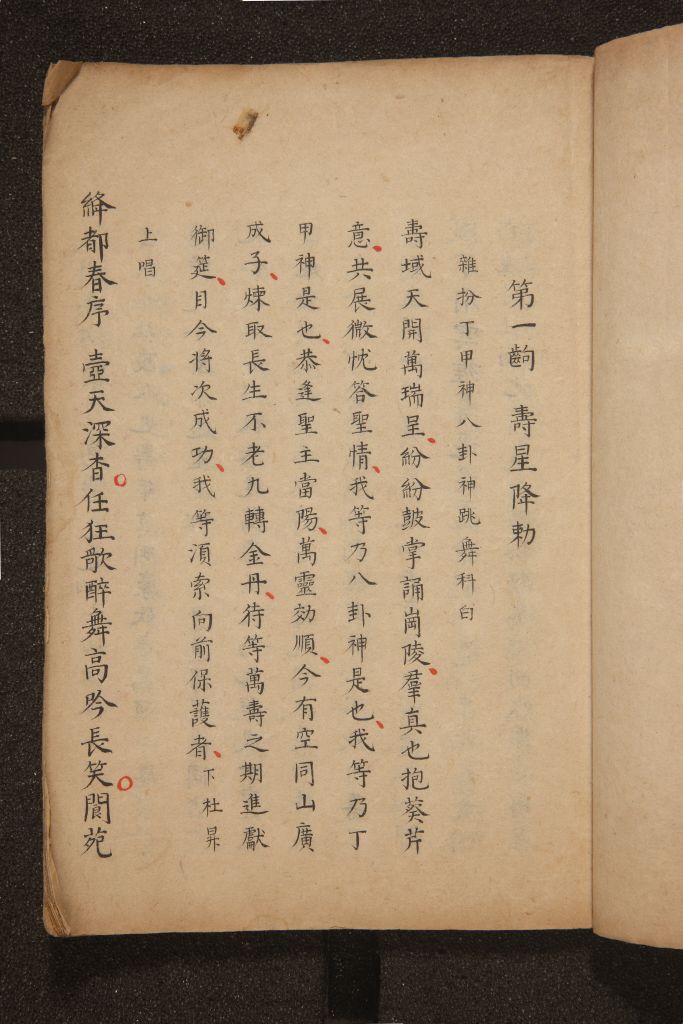 第一齣 壽星降勅
雜扮丁甲神八卦神跳舞科白
壽域天開萬瑞呈紛紛皷掌誦崗陵羣真也抱葵芹
意共展微忱答聖情我等乃八卦神是也我等乃丁
甲神是也恭逢聖主當陽萬靈効順今有空同山廣
成子煉取長生不老九轉金丹待等萬壽之期進獻
御筵目今將次成功我等湏索向前保護者下杜昇
上唱
絳都春序 壺天深杳任狂歌醉舞高吟長笑閬苑